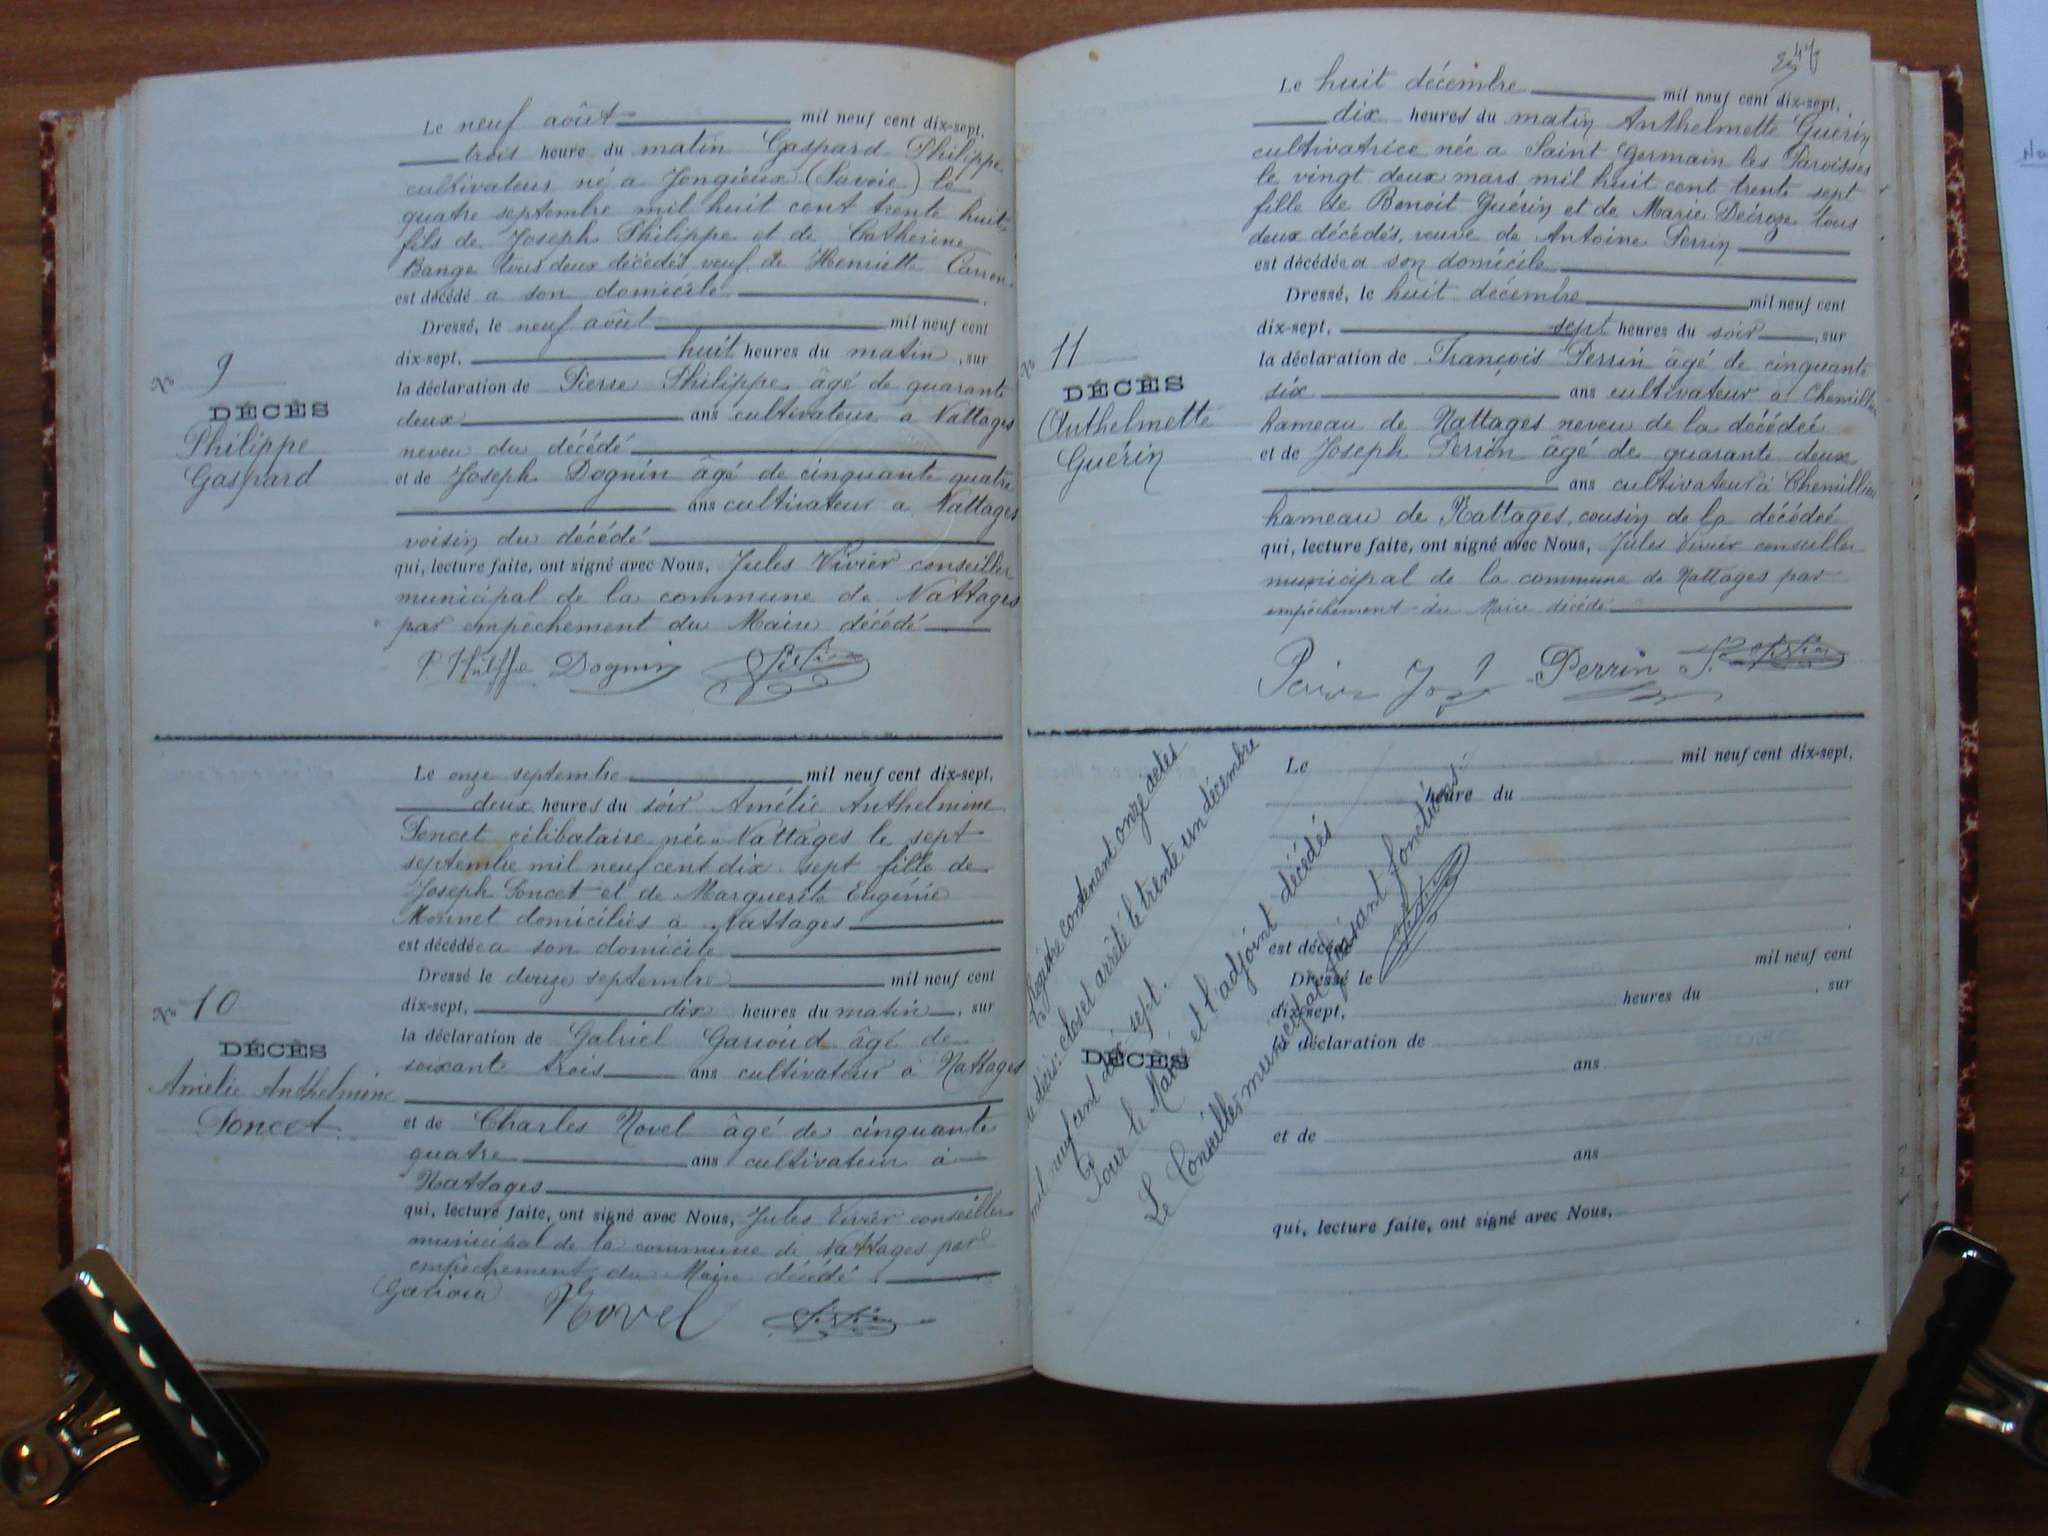 Le neuf août mil neuf cent dix-sept,
trois heure du matin Gaspard Philippe
cultivateur né a Jongieux (Savoie) le
quatre septembre mil huit cent trente huit
fils de Joseph Philippe et de Catherine
Bange tous deux décédés veuf de Henriette Carron
est décédé a son domicile
Dressé, le neuf août mil neuf cent
dix-sept, huit heures du matin, sur
No 9
la déclaration de Pierre Philippe âgé de quarante
DÉCÈS
deux ans cultivateur a Nattages
Philippe
neveu du décédé
Gaspard
et de Joseph Dognin âgé de cinquante quatre
ans cultivateur a Nattages
voisin du décédé
qui, lecture faite, ont signé avec Nous, Jules Vivier conseiller
municipal de la commune de Nattages
par empêchement du Maire décédé
Dognin
Le onze septembre mil neuf cent dix-sept,
deux heures du soir Amélie Anthelmine
Poncet célibataire née a Nattages le sept
septembre mil neuf cent dix-sept fille de
Joseph Poncet et de Marguerite Eugénie
Monnet domiciliés à Nattages
est décédée a son domicile
Dressé le douze septembre mil neuf cent
No 10
dix-sept, dix heures du matin, sur
la déclaration de Gabriel Garioud âgé de
DÉCÈS
soixante trois ans cultivateur à Nattages
Amélie Anthelmine
Poncet
et de Charles Novel âgé de cinquante
quatre ans cultivateur à
Nattages
qui, lecture faite, ont signé avec Nous, Jules Vivier conseiller
municipal de la commune de Nattages par
empêchement du Maire décédé.
Garioud Novel
Le huit décembre mil neuf cent dix-sept,
dix heures du matin Anthelmette Guérin
cultivatrice née a Saint Germain les Paroisses
le vingt deux mars mil huit cent trente sept
fille de Benoit Guérin et de Marie Décroze tous
deux décédés, veuve de Antoine Perrin
est décédée a son domicile
Dressé, le huit décembre mil neuf cent
dix-sept, sept heures du soir, sur
No 11
la déclaration de François Perrin âgé de cinquante
DÉCÈS
six ans cultivateur à Chemillieu
Anthelmette
hameau de Nattages neveu de la décédée
Guérin
et de Joseph Perrin âgé de quarante deux
ans cultivateur à Chemillieu
hameau de Nattages, cousin de la décédée
qui, lecture faite, ont signé avec Nous, Jules Vivier conseiller
municipal de la commune de Nattages par
empêchement du Maire décédé
Perrin
Le mil neuf cent dix-sept,
heure du
est décédé
Dressé le mil neuf cent
dix-sept, heures du , sur
la déclaration de
DÉCÈS
ans
et de
ans
qui, lecture faite, ont signé avec Nous,
Régistre contenant onze actes
de décès: clos et arrêté le trente un décembre
mil neuf cent dix-sept.
Pour le Maire et l'adjoint décédés
Le Conseiller municipal faisant fonctions: